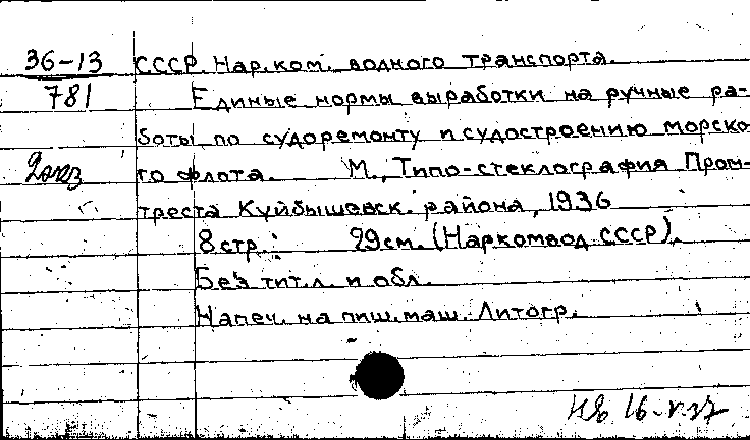 36-13
781
2 экз
СССР. Нар.ком. водного транспорта.
Единые нормы выработки на ручные ра-
боты по судоремонту и судостроению морско
го флота. М., Типо-стеклография Пром-
треста Куйбышевск. района, 1936
8 стр.; 29 см. (Наркомвод СССР).
Без тит.л. и обл.
Напеч. на пиш.маш. Литогр.
16-V-37